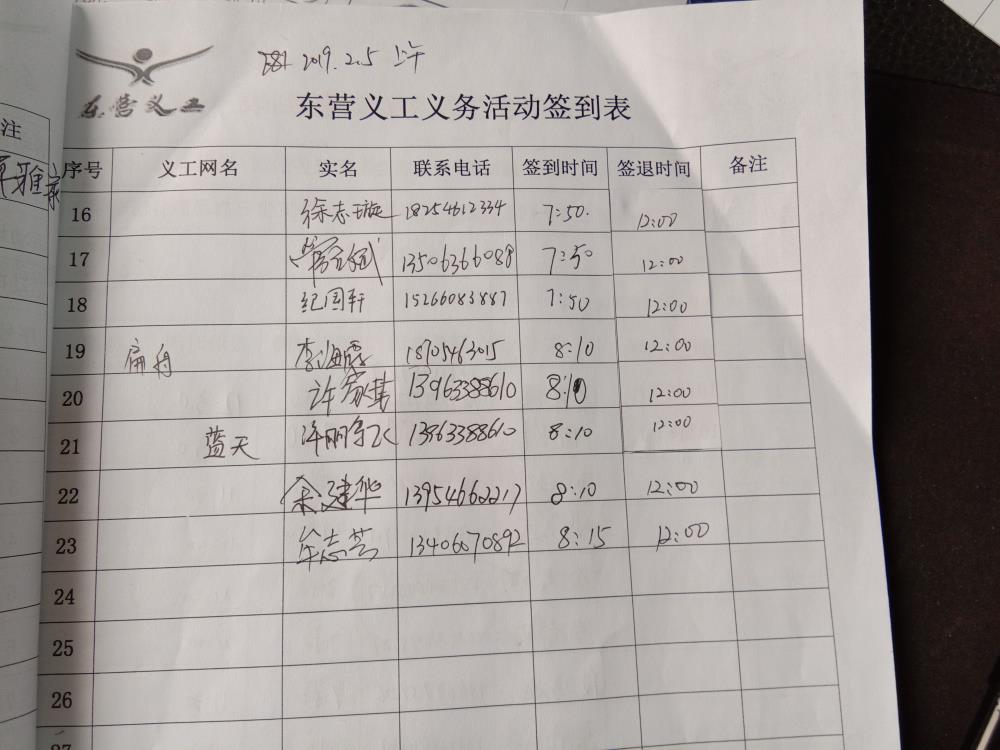 2019.2.5 上午
东营义工
东营义工义务活动签到表
注
序号 义工网名 实名 联系电话 签到时间 签退时间 备注
16 徐志璇 18254612334 7:50. 12:00
17 13506366088 7:50 12:00
18 纪国轩 15266083887 7:50 12:00
19 扁舟 李海霞 18705463015 8:10 12:00
20 许家琪 13963388610 8:10 12:00
21 蓝天 许丽 13963388610 8:10 12:00
22 余建华 13954662217 8:10 12:00
23 徐志芸 13406670892 8:15 12:00
24
25
26
27